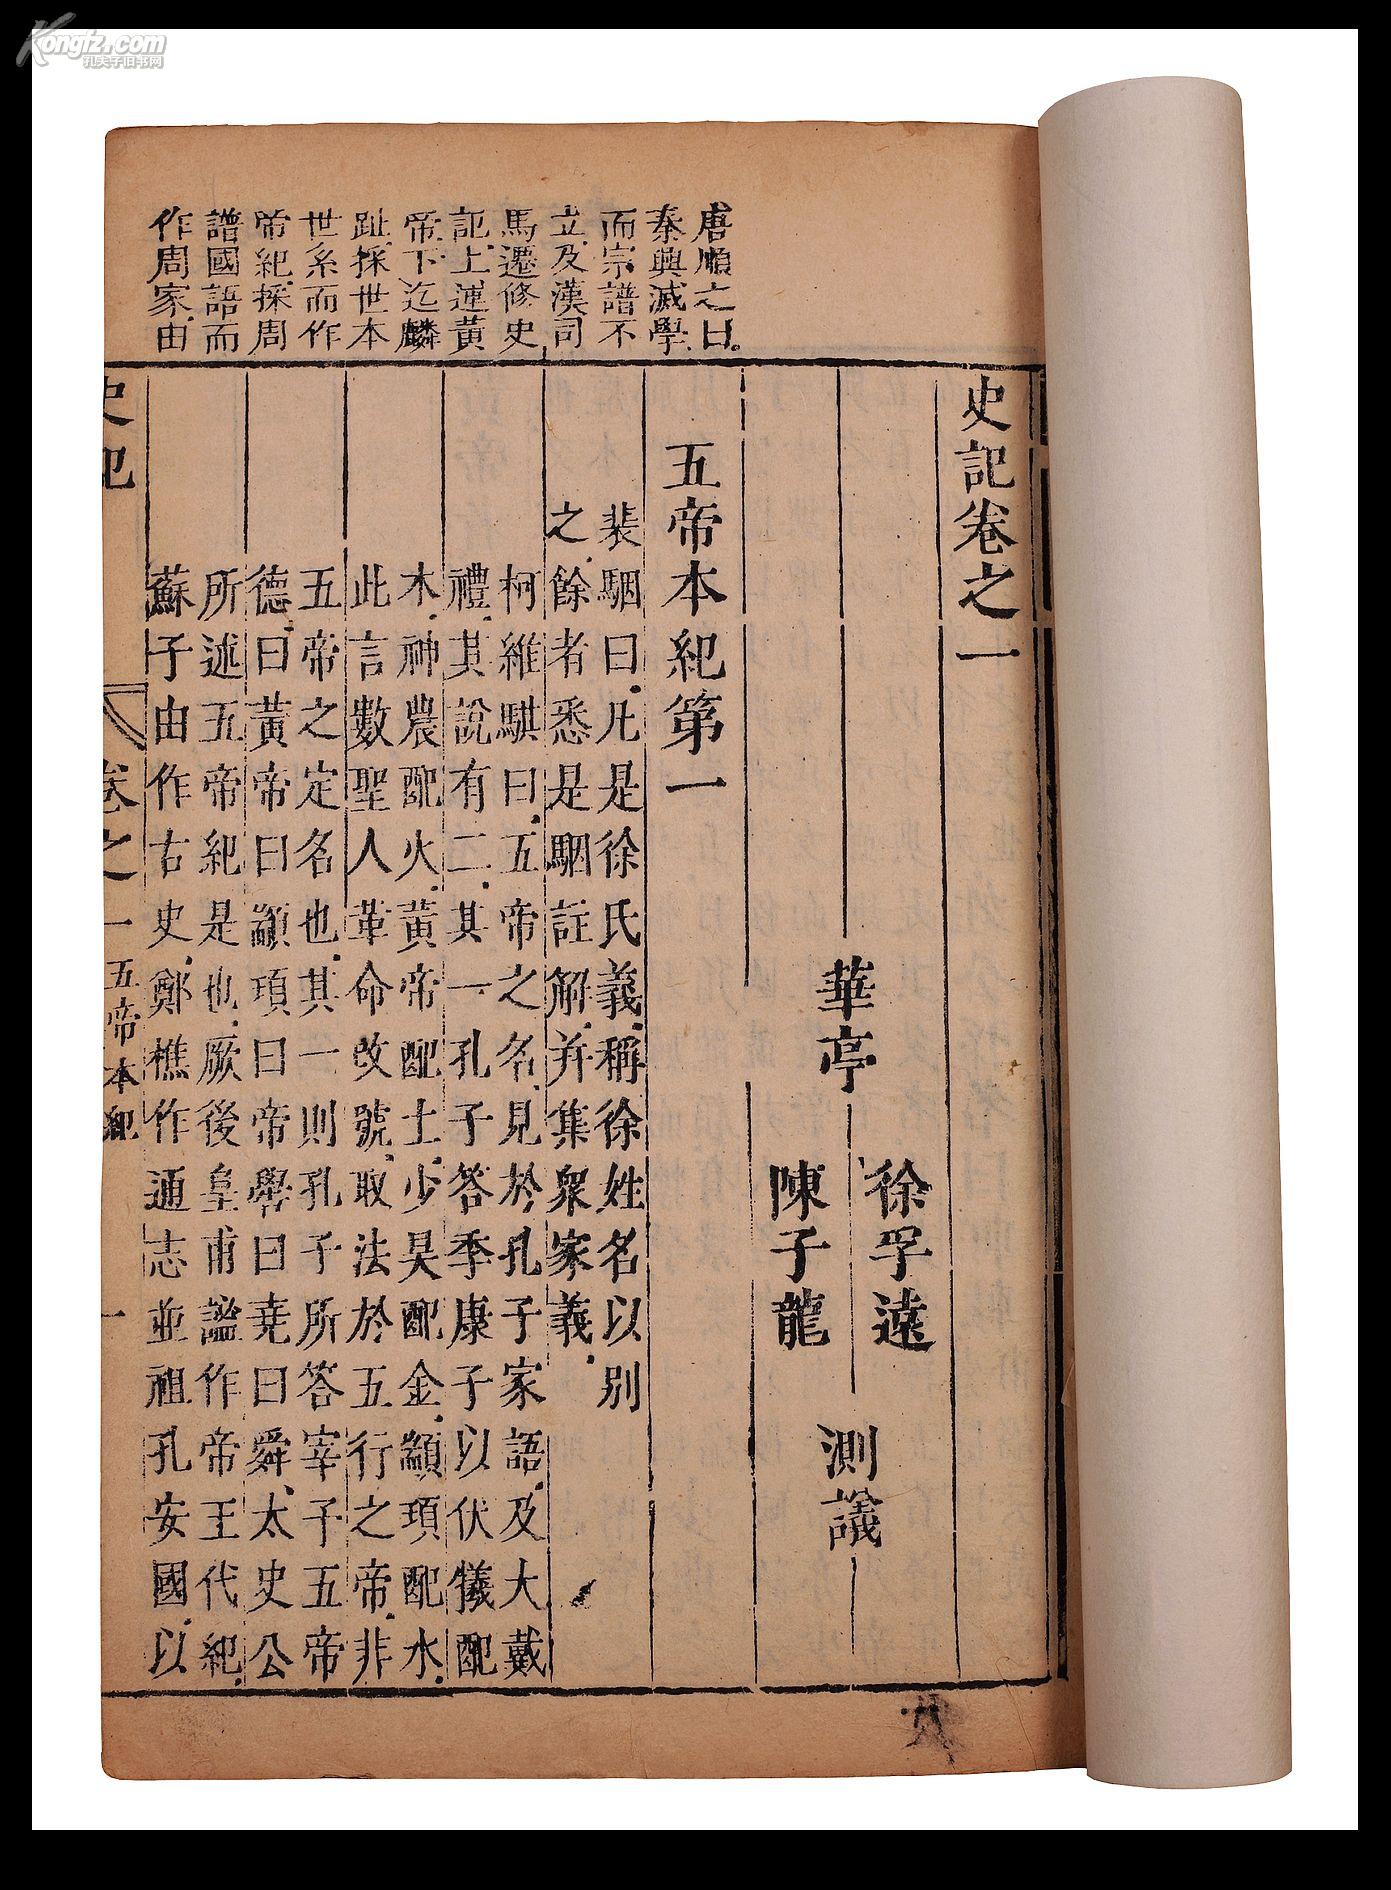 Kongfz.com
孔夫子旧书网
唐順之曰
秦興滅學
而宗譜不
立及漢司
馬遷修史
記上運黃
帝下迄麟
趾採世本
世系而作
帝紀採周
譜國語而
作周家由
史記卷之一
華亭
徐孚遠
陳子龍
測議
五帝本紀第一
裴駰曰凡是徐氏義稱徐姓名以別
之餘者悉是駰註解并集衆家義
柯維騏曰五帝之名見於孔子家語及大戴
禮其說有二其一孔子答季康子以伏犧配
木神農配火黃帝配土少昊配金顓頊配水
此言數聖人革命改號取法於五行之帝非
五帝之定名也其一則孔子所答宰予五帝
德曰黃帝曰顓頊曰帝嚳曰堯曰舜太史公
所述五帝紀是也厥後皇甫謐作帝王代紀
蘇子由作古史鄭樵作通志並祖孔安國以
史記
卷之一
五帝本紀
一